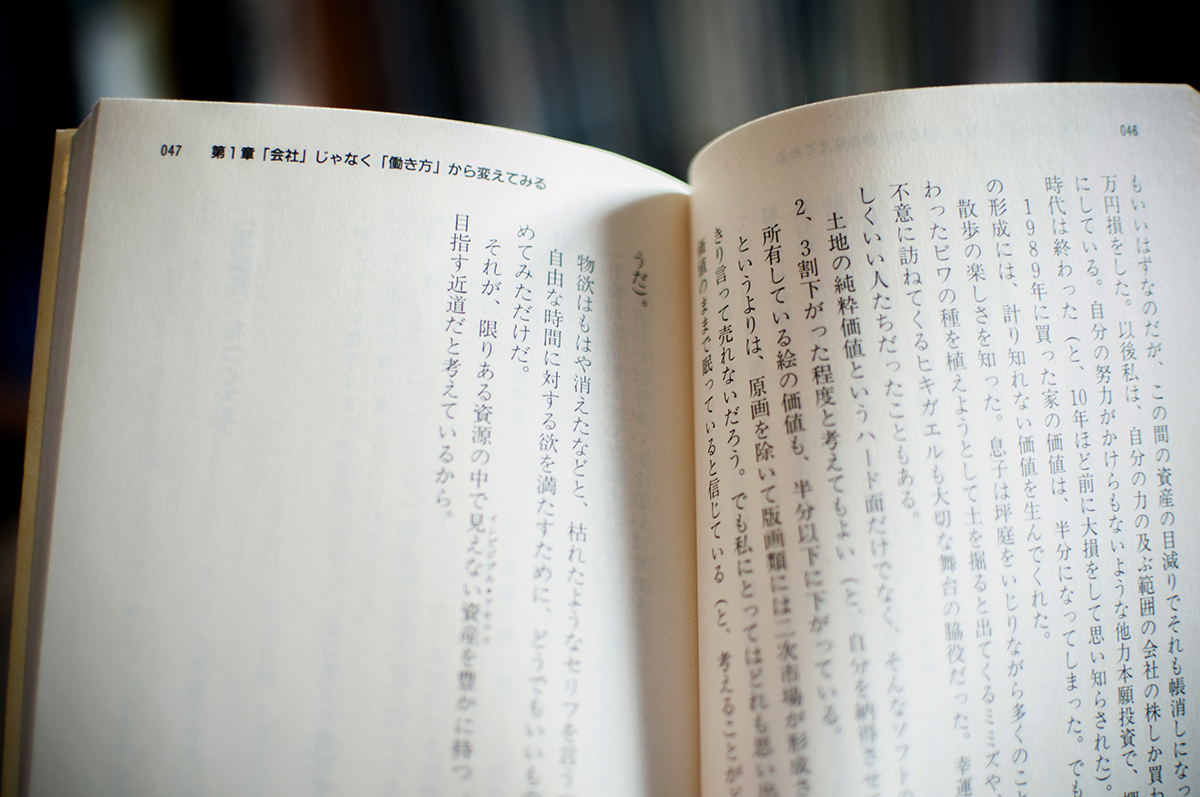 046
もいいはずなのだが、この間の資産の目減りでそれも帳消しになっ
万円損をした。以後私は、自分の力の及ぶ範囲の会社の株しか買わ
にしている。自分の努力がかけらもないような他力本願投資で、
時代は終わった(と、10年ほど前に大損をして思い知らされた)。
1989年に買った家の価値は、半分になってしまった。でも
の形成には、計り知れない価値を生んでくれた。
散歩の楽しさを知った。息子は坪庭をいじりながら多くのこと
わったビワの種を植えようとして土を掘ると出てくるミミズや、
不意に訪ねてくるヒキガエルも大切な舞台の脇役だった。幸運
しくいい人たちだったこともある。
土地の純粋価値というハード面だけでなく、そんなソフトの
2、3割下がった程度と考えてもよい(と、自分を納得させ
所有している絵の価値も、半分以下に下がっている。
というよりは、原画を除いて版画類には二次市場が形成さ
きり言って売れないだろう。でも私にとってはどれも思い出
価値のままで眠っていると信じている(と、考えることが
047 第1章「会社」じゃなく「働き方」から変えてみる
うだ)。
物欲はもはや消えたなどと、枯れたようなセリフを言う
自由な時間に対する欲を満たすために、どうでもいいもの
めてみただけだ。
それが、限りある資源の中で見えない資産を豊かに持つ
目指す近道だと考えているから。